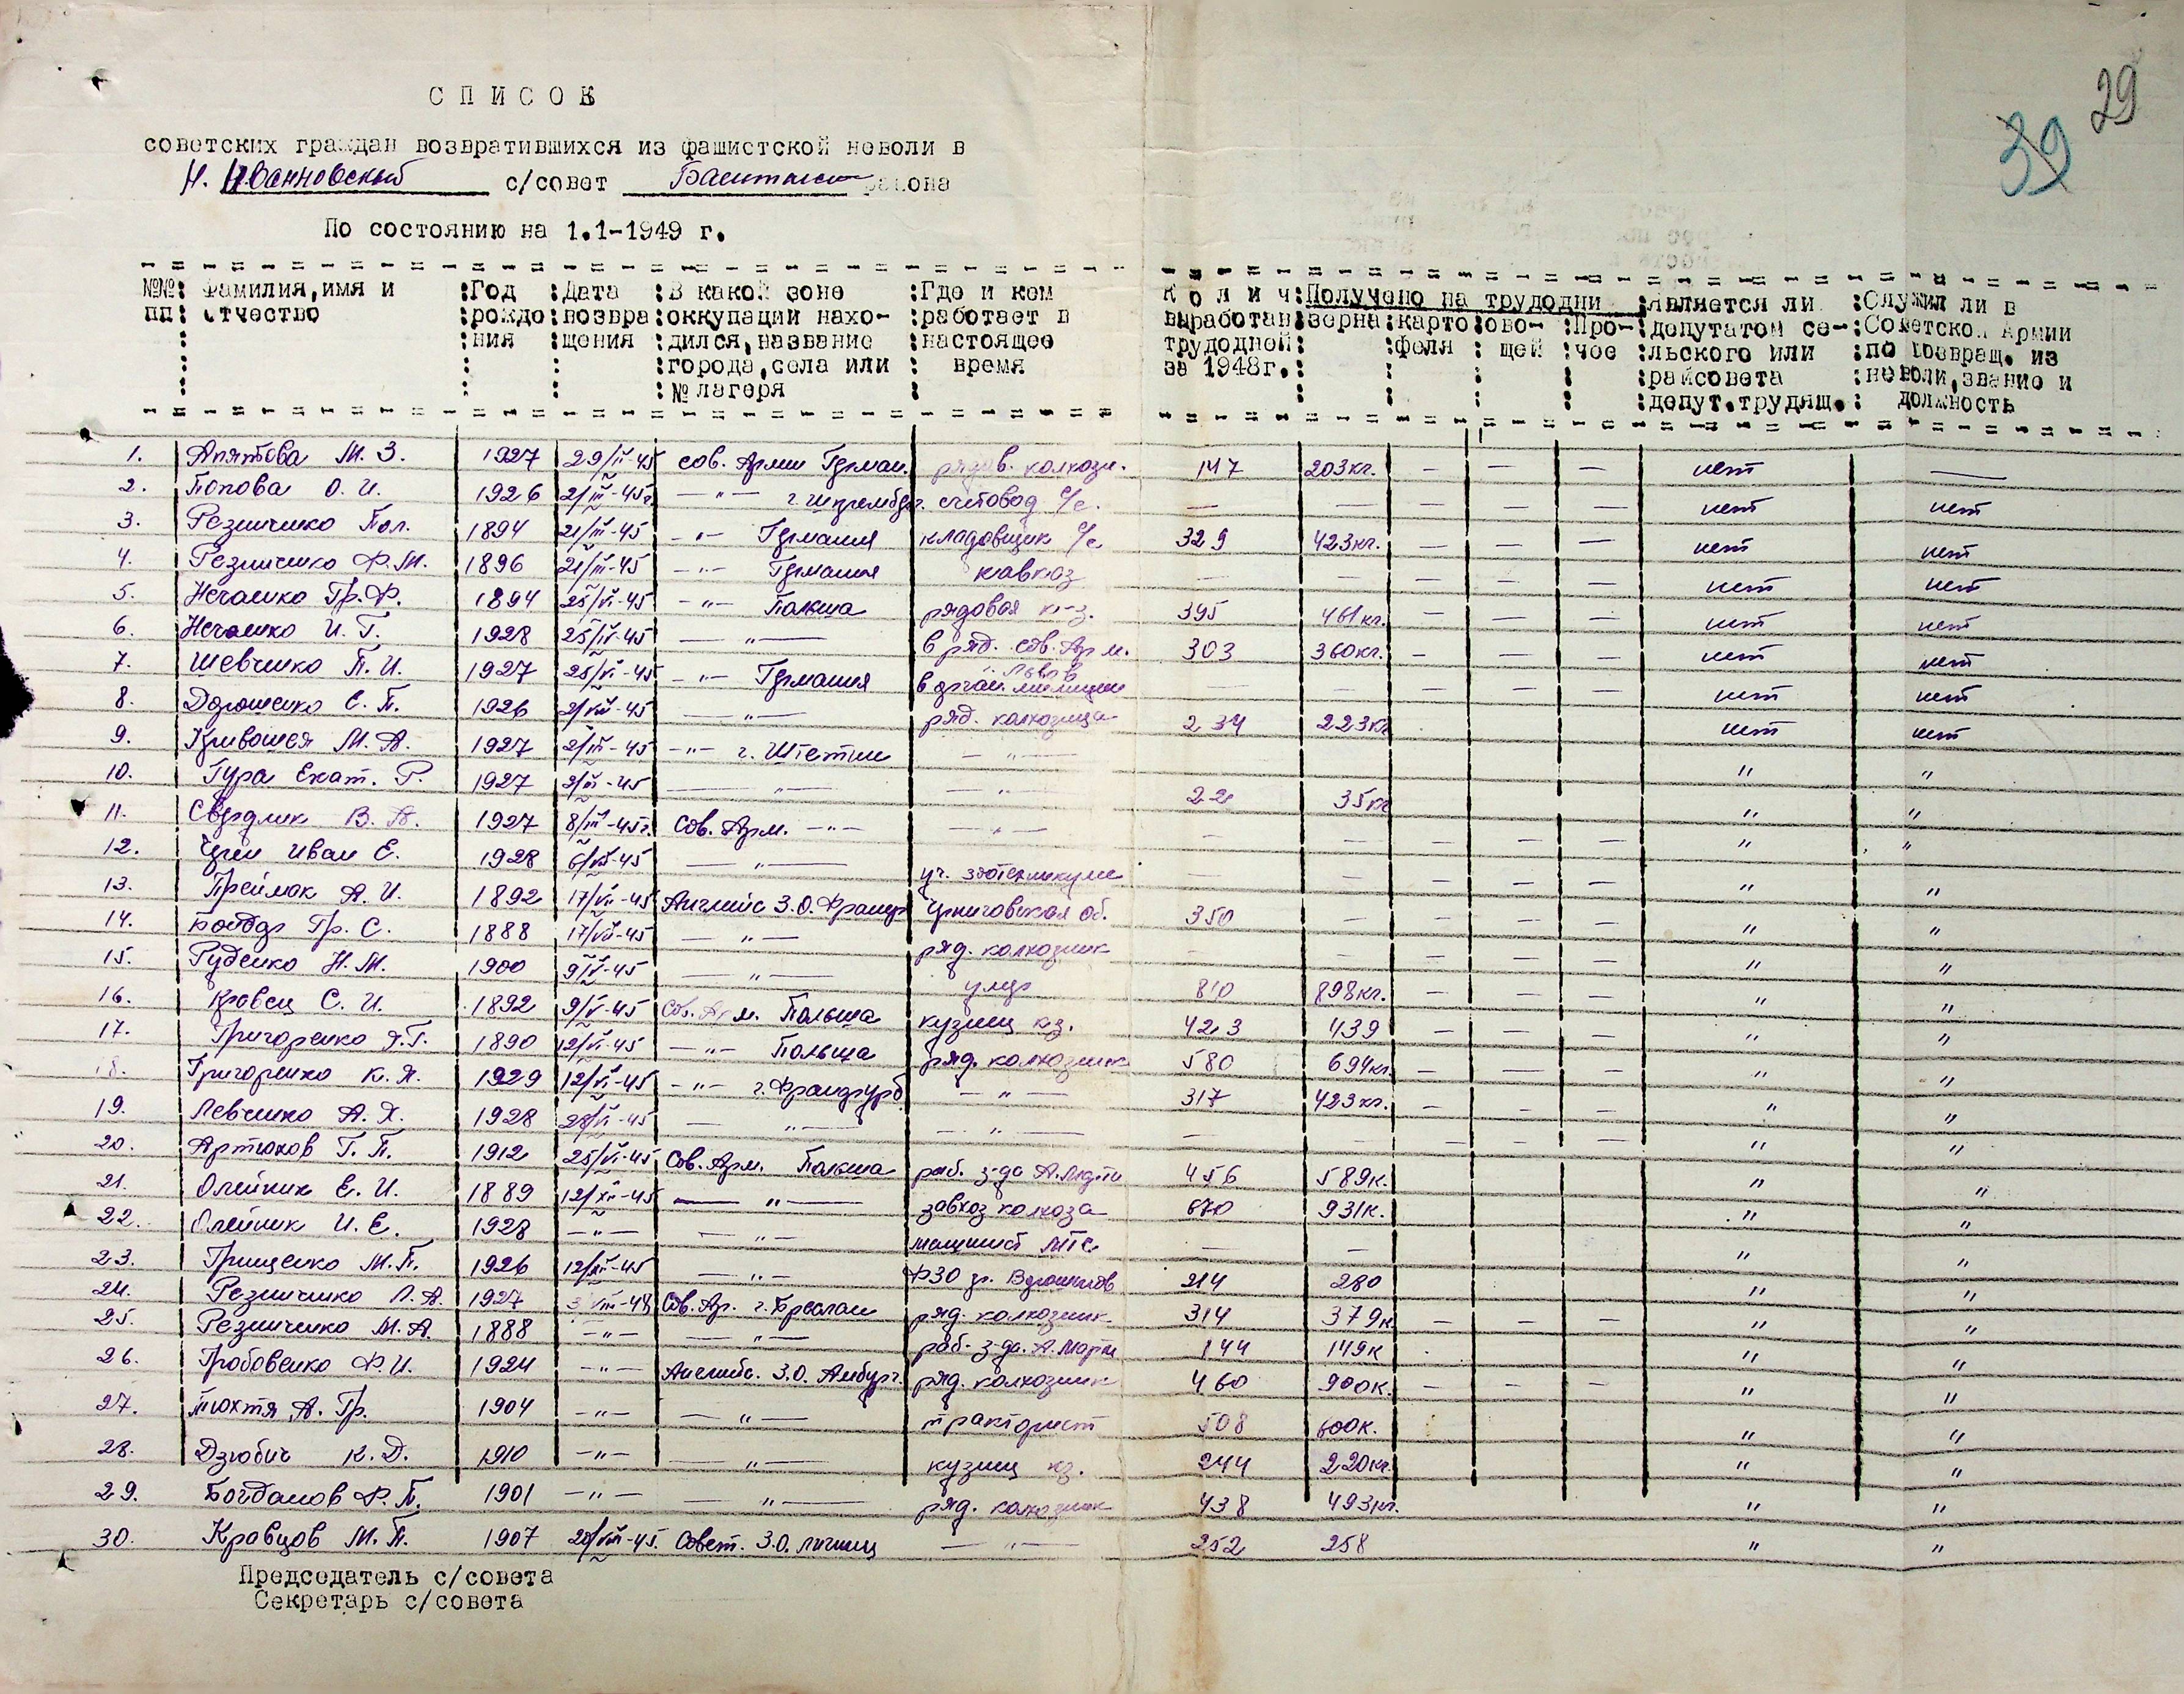 29
39
СПИСОК
советских граждан возвратившихся из фашистской неволи в
Н. Ивановский с/совет Баштанск района
По состоянию на 1.1-1949 г.
№№ пп : Фамилия, имя и отчество : Год рождения : Дата возвращения : В какой зоне оккупации находился, название города, села или № лагеря : Где и кем работает в настоящее время : Колич выработан трудодней за 1948г. : Получено на трудодни : зерна : картофеля : овощей : Прочее : Является ли депутатом сельского или райсовета депут. трудящ. : Служил ли в Советской Армии по возвращ. из неволи, звание и должность
1. М. З. 1927 29/IV-45 сов. Армии Герман. рядов. колхозн. 147 203кг. — — — нет —
2. Попова О. И. 1926 2/III-45г —"— г. счетовод с/с. — — нет нет
3. Резниченко Пол. 1894 21/III-45 —"— Германия кладовщик 329 423кг. — — — нет нет
4. Резниченко Ф. М. 1896 21/III-45 —"— Германия завхоз — — — — — нет нет
5. Нечаенко Гр. Ф. 1894 25/VI-45 —"— Польша рядовая к-з. 395 461кг. — — — нет нет
6. Нечаенко И. Г. 1928 25/IV-45 —"— в ряд. Сов. Арм. 303 360кг. — — — нет нет
7. Шевченко П. И. 1927 25/VI-45 —"— Германия в орган. милиции Львов — — — — — нет нет
8. Дорошенко Е. П. 1926 2/VIII-45 —"— ряд. колхозница 234 223кг нет нет
9. Кривошея М. А. 1927 2/III-45 —"— г. Штетин —"— " "
10. Гура Екат. Р. 1927 2/III-45 —"— —"— 22 35кг " "
11. Свердлик В. А. 1927 8/III-45г. Сов. Арм. —"— —"— — — — — — " "
12. Иван Е. 1928 6/VII-45 —"— уч. — — — — — " "
13. Преймак А. И. 1892 17/VII-45 Английс З.О. Черниговская об. 350 — — — — " "
14. Гр. С. 1888 17/VII-45 —"— ряд. колхозник — — — — — " "
15. Руденко Н. М. 1900 9/V-45 —"— умер 810 898кг. — — — " "
16. Кравец С. И. 1892 9/V-45 Сов. Арм. Польша кузнец кз. 423 439 — — — " "
17. Григоренко Я. Г. 1890 12/VI-45 —"— Польша ряд. колхозник 580 694кг. — — — " "
18. Григоренко К. Я. 1929 12/VI-45 —"— г. —"— 317 423кг. — — — " "
19. Левченко А. Х. 1928 28/VI-45 —"— —"— — — — — — " "
20. Артюхов Г. П. 1912 25/VI-45 Сов. Арм. Польша раб. з-да А. Марти 456 589к. " "
21. Олейник Е. И. 1889 12/XII-45 —"— завхоз колхоза 670 931к. " "
22. Олейник И. Е. 1928 —"— —"— машинист МТС — — " "
23. Грищенко М. П. 1926 12/XII-45 —"— ФЗО 214 280 " "
24. Резниченко Л. А. 1927 3 VIII-48 Сов. Ар. г. Бреслау ряд. колхозник 314 379к — — — " "
25. Резниченко М. А. 1888 —"— —"— раб. з-да. А. Марти 144 149к " "
26. Грабовенко Ф. И. 1924 —"— Английс. З.О. ряд. колхозник 460 900к. — — — " "
27. Тюхтя А. Гр. 1904 —"— —"— тракторист 508 600к. " "
28. Дзюбич К. Д. 1910 —"— —"— кузнец кз. 244 220кг. " "
29. Богданов Ф. П. 1901 —"— —"— ряд. колхозник 438 493кг. " "
30. Кравцов М. П. 1907 20/VIII-45. Совет. З.О. —"— 252 258 " "
Председатель с/совета
Секретарь с/совета